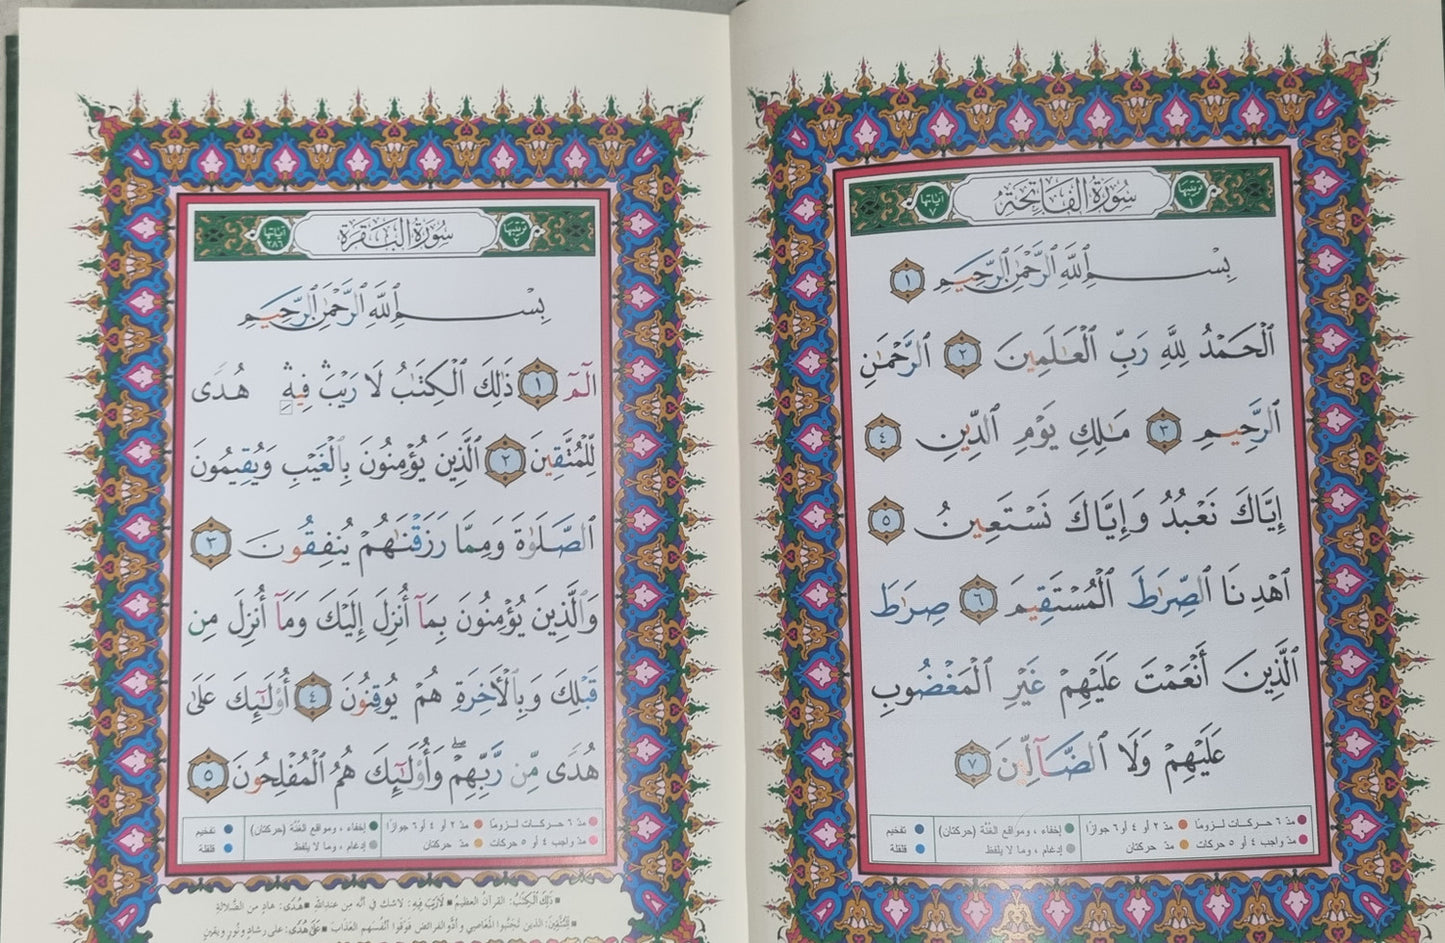 ترتيبها ١
سُورَةُ الفَاتِحَةِ
آياتها ٧
بِسْمِ ٱللَّهِ ٱلرَّحْمَٰنِ ٱلرَّحِيمِ ١
ٱلْحَمْدُ لِلَّهِ رَبِّ ٱلْعَٰلَمِينَ ٢ ٱلرَّحْمَٰنِ
ٱلرَّحِيمِ ٣ مَٰلِكِ يَوْمِ ٱلدِّينِ ٤
إِيَّاكَ نَعْبُدُ وَإِيَّاكَ نَسْتَعِينُ ٥
ٱهْدِنَا ٱلصِّرَٰطَ ٱلْمُسْتَقِيمَ ٦ صِرَٰطَ
ٱلَّذِينَ أَنْعَمْتَ عَلَيْهِمْ غَيْرِ ٱلْمَغْضُوبِ
عَلَيْهِمْ وَلَا ٱلضَّآلِّينَ ٧
مدّ ٦ حركـات لـزومـًا مدّ ٢ أو ٤ أو ٦ جوازًا إخفاء ، ومواقع الغنّة (حركتان) تفخيم
مدّ واجب ٤ أو ٥ حركات مدّ حركتان إدغام ، وما لا يلفظ قلقلة
ترتيبها ٢
سُورَةُ البَقَرَةِ
آياتها ٢٨٦
بِسْمِ ٱللَّهِ ٱلرَّحْمَٰنِ ٱلرَّحِيمِ
الٓمٓ ١ ذَٰلِكَ ٱلْكِتَٰبُ لَا رَيْبَ ۛ فِيهِ ۛ هُدًى
لِّلْمُتَّقِينَ ٢ ٱلَّذِينَ يُؤْمِنُونَ بِٱلْغَيْبِ وَيُقِيمُونَ
ٱلصَّلَوٰةَ وَمِمَّا رَزَقْنَٰهُمْ يُنفِقُونَ ٣
وَٱلَّذِينَ يُؤْمِنُونَ بِمَآ أُنزِلَ إِلَيْكَ وَمَآ أُنزِلَ مِن
قَبْلِكَ وَبِٱلْأَخِرَةِ هُمْ يُوقِنُونَ ٤ أُو۟لَٰٓئِكَ عَلَىٰ
هُدًى مِّن رَّبِّهِمْ ۖ وَأُو۟لَٰٓئِكَ هُمُ ٱلْمُفْلِحُونَ ٥
مدّ ٦ حركـات لـزومـًا مدّ ٢ أو ٤ أو ٦ جوازًا إخفاء ، ومواقع الغنّة (حركتان) تفخيم
مدّ واجب ٤ أو ٥ حركات مدّ حركتان إدغام ، وما لا يلفظ قلقلة
ذَٰلِكَ ٱلْكِتَٰبُ: القرآن العظيم لَا رَيْبَ فِيهِ: لاشك في أنّه من عندالله هُدًى: هادٍ من الضّلالة
لِّلْمُتَّقِينَ: الذين تجنّبوا المعاصي وأدَّوا الفرائض فوقَوا أنفسهم العذاب عَلَىٰ هُدًى: على رشادٍ ونُورٍ ويقين